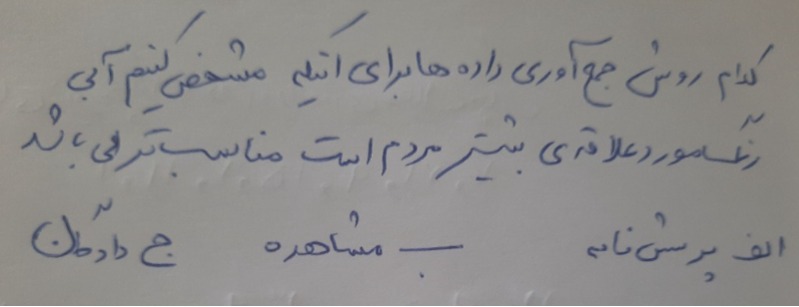 کدام روش جمع‌آوری داده ها برای اینکه مشخص کنیم آبی
رنگ مورد علاقه‌ی بیشتر مردم است مناسب‌تر می باشد
الف پرسش نامه ب مشاهده ج دادگان